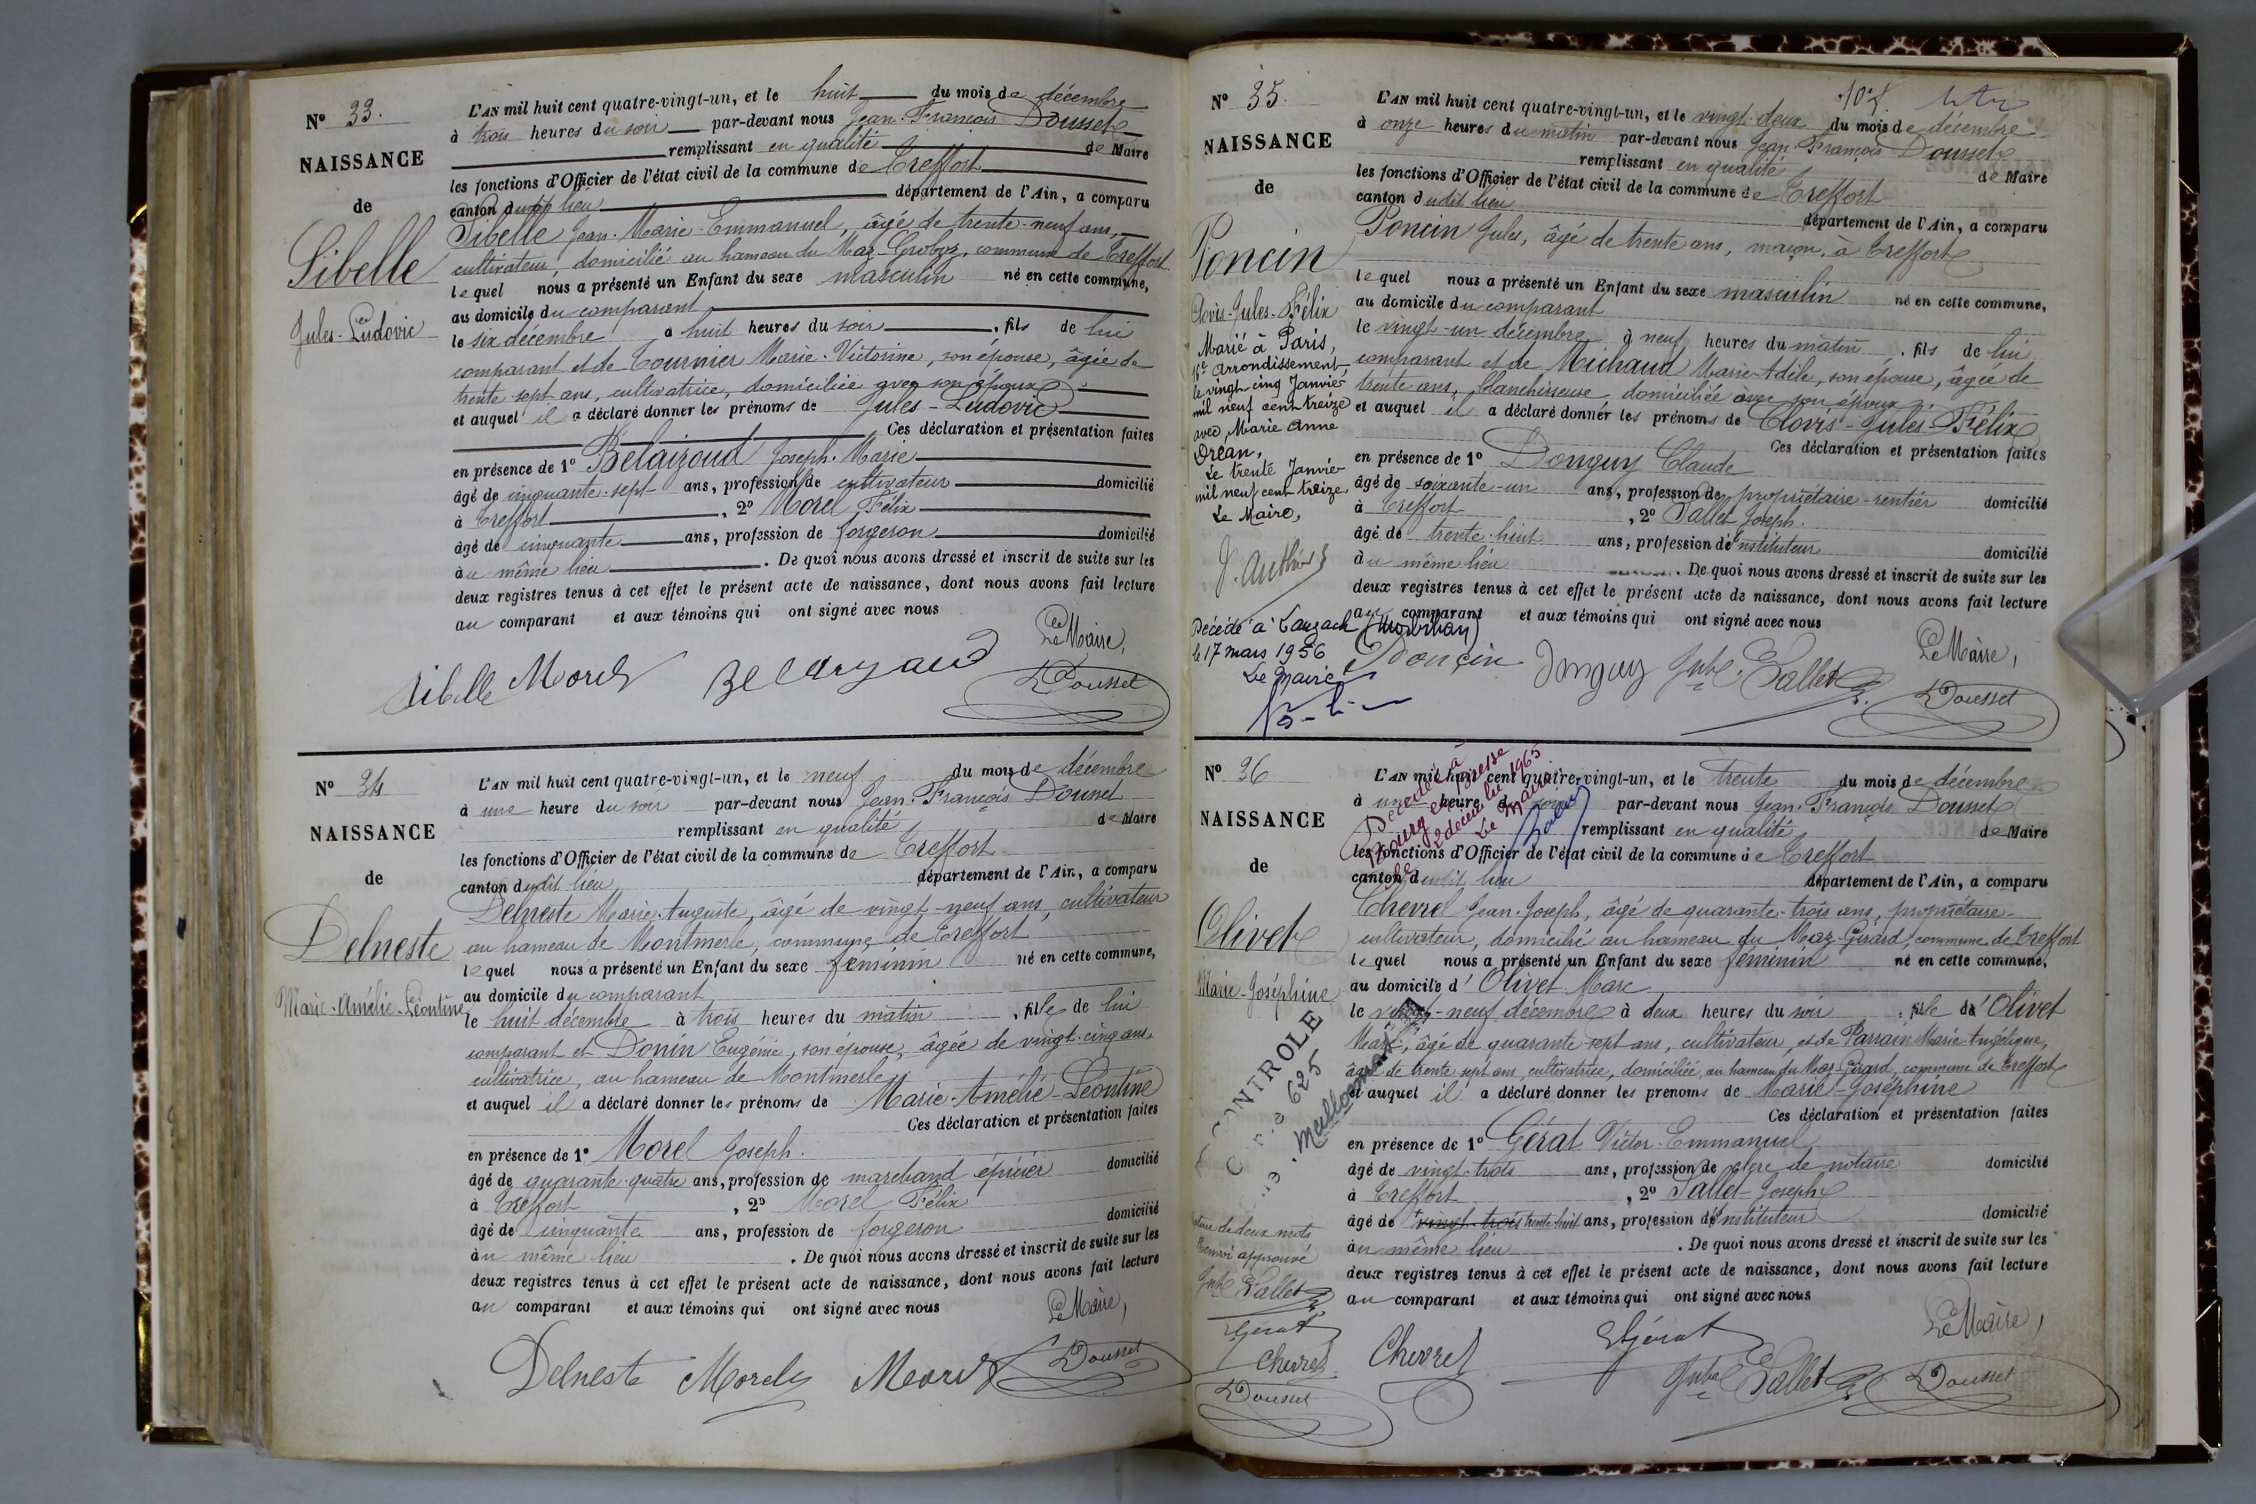 N° 33.
NAISSANCE
de
Sibelle
Jules-Ludovic
L'AN mil huit cent quatre-vingt-un, et le huit du mois de décembre
à trois heures du soir par-devant nous Jean-François Dousset
remplissant en qualité de Maire
les fonctions d'Officier de l'état civil de la commune de Treffort
canton dudit lieu département de l'Ain, a comparu
Sibelle Jean-Marie-Emmanuel, âgé de trente-neuf ans,
cultivateur, domicilié au hameau du Mas-Groboz, commune de Treffort
lequel nous a présenté un Enfant du sexe masculin né en cette commune,
au domicile du comparant
le six décembre à huit heures du soir, fils de lui
comparant et de Tournier Marie-Victorine, son épouse, âgée de
trente-sept ans, cultivatrice, domiciliée avec son époux
et auquel il a déclaré donner les prénoms de Jules-Ludovic
Ces déclaration et présentation faites
en présence de 1° Belaizoud Joseph-Marie
âgé de cinquante-sept ans, profession de cultivateur domicilié
à Treffort, 2° Morel Félix
âgé de cinquante ans, profession de forgeron domicilié
au même lieu. De quoi nous avons dressé et inscrit de suite sur les
deux registres tenus à cet effet le présent acte de naissance, dont nous avons fait lecture
au comparant et aux témoins qui ont signé avec nous
Le Maire,
Sibelle Morel Dousset
N° 34
NAISSANCE
de
Delneste
Marie-Amélie-Léontine
L'AN mil huit cent quatre-vingt-un, et le neuf du mois de décembre
à une heure du soir par-devant nous Jean-François Dousset
remplissant en qualité de Maire
les fonctions d'Officier de l'état civil de la commune de Treffort
canton dudit lieu département de l'Ain, a comparu
Delneste Marie-Auguste, âgé de vingt-neuf ans, cultivateur
au hameau de Montmerle, commune de Treffort
lequel nous a présenté un Enfant du sexe féminin né en cette commune,
au domicile du comparant
le huit décembre à trois heures du matin, fille de lui
comparant et Donin Eugénie, son épouse, âgée de vingt-cinq ans,
cultivatrice, au hameau de Montmerle
et auquel il a déclaré donner les prénoms de Marie-Amélie-Léontine
Ces déclaration et présentation faites
en présence de 1° Morel Joseph.
âgé de quarante-quatre ans, profession de marchand épicier domicilié
à Treffort, 2° Morel Félix
âgé de cinquante ans, profession de forgeron domicilié
au même lieu. De quoi nous avons dressé et inscrit de suite sur les
deux registres tenus à cet effet le présent acte de naissance, dont nous avons fait lecture
au comparant et aux témoins qui ont signé avec nous
Le Maire,
Delneste Morel Morel Dousset
N° 35.
NAISSANCE
de
Poncin
Clovis-Jules-Félix
Marié à Paris,
arrondissement,
le vingt cinq Janvier
mil neuf cent treize
avec Marie Anne
Orean,
Le trente Janvier
mil neuf cent treize
Le Maire,
Décédé à Lauzach (Morbihan)
le 17 mars 1956
Le Maire
L'AN mil huit cent quatre-vingt-un, et le vingt-deux du mois de décembre
à onze heures du matin par-devant nous Jean-François Dousset
remplissant en qualité de Maire
les fonctions d'Officier de l'état civil de la commune de Treffort
canton dudit lieu département de l'Ain, a comparu
Poncin Jules, âgé de trente ans, maçon, à Treffort
lequel nous a présenté un Enfant du sexe masculin né en cette commune,
au domicile du comparant
le vingt-un décembre à neuf heures du matin, fils de lui
comparant et de Michaud Marie-Adèle, son épouse, âgée de
trente ans, blanchisseuse, domiciliée avec son époux
et auquel il a déclaré donner les prénoms de Clovis-Jules-Félix
Ces déclaration et présentation faites
en présence de 1° Donguy Claude
âgé de soixante-un ans, profession de propriétaire-rentier domicilié
à Treffort, 2° Sallet Joseph.
âgé de trente-huit ans, profession d'instituteur domicilié
au même lieu. De quoi nous avons dressé et inscrit de suite sur les
deux registres tenus à cet effet le présent acte de naissance, dont nous avons fait lecture
au comparant et aux témoins qui ont signé avec nous
Le Maire,
Poncin Donguy Sallet Dousset
N° 36
NAISSANCE
de
Olivet
Marie-Joséphine
Décédée à
Bourg en Bresse
le 12 décembre 1965
Le Maire
CONTROLE
625
L'AN mil huit cent quatre-vingt-un, et le trente du mois de décembre
à une heure du soir par-devant nous Jean-François Dousset
remplissant en qualité de Maire
les fonctions d'Officier de l'état civil de la commune de Treffort
canton dudit lieu département de l'Ain, a comparu
Chevrel Jean-Joseph, âgé de quarante-trois ans, propriétaire-
cultivateur, domicilié au hameau du Mas-Girard, commune de Treffort
lequel nous a présenté un Enfant du sexe féminin né en cette commune,
au domicile d'Olivet Marc
le vingt-neuf décembre à deux heures du soir, fille d'Olivet
Marc, âgé de quarante-sept ans, cultivateur, et de Parrain Marie-Angélique,
âgée de trente-sept ans, cultivatrice, domiciliée au hameau du Mas-Girard, commune de Treffort
et auquel il a déclaré donner les prénoms de Marie-Joséphine
Ces déclaration et présentation faites
en présence de 1° Gérat Victor-Emmanuel
âgé de vingt-trois ans, profession de clerc de notaire domicilié
à Treffort, 2° Sallet Joseph
âgé de vingt-trois trente huit ans, profession d'instituteur domicilié
au même lieu. De quoi nous avons dressé et inscrit de suite sur les
deux registres tenus à cet effet le présent acte de naissance, dont nous avons fait lecture
au comparant et aux témoins qui ont signé avec nous
de deux mots
Renvoi approuvé
Sallet
Gérat
Chevrel
Dousset
Le Maire,
Chevrel Gérat Sallet Dousset